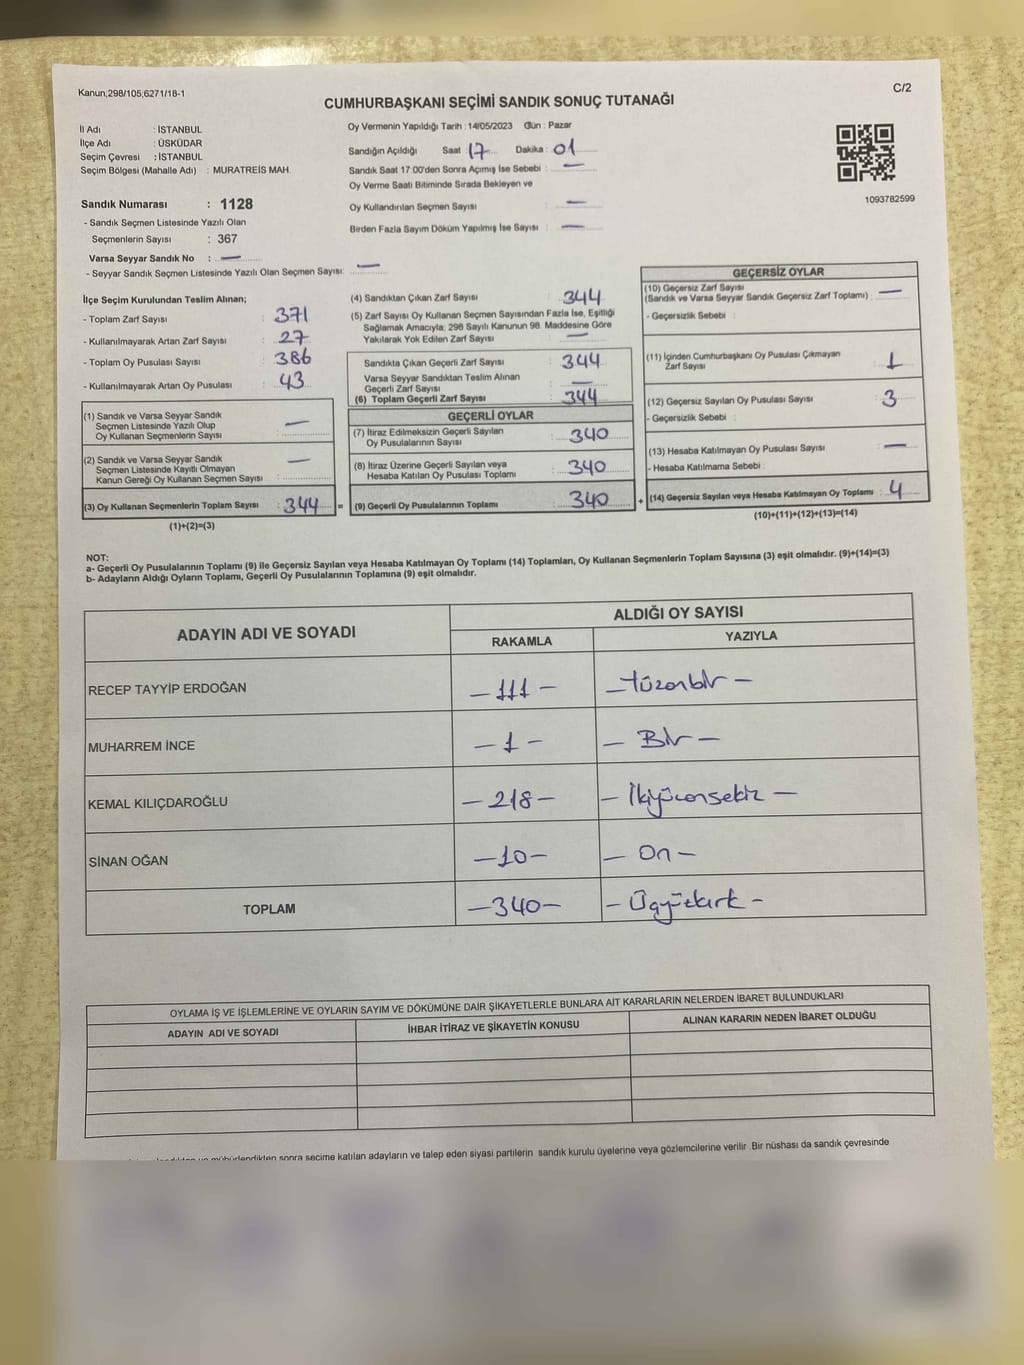 Kanun;298/105;6271/18-1
C/2
CUMHURBAŞKANI SEÇİMİ SANDIK SONUÇ TUTANAĞI
İl Adı : İSTANBUL
İlçe Adı : ÜSKÜDAR
Seçim Çevresi : İSTANBUL
Seçim Bölgesi (Mahalle Adı) : MURATREİS MAH.
Sandık Numarası : 1128
- Sandık Seçmen Listesinde Yazılı Olan
Seçmenlerin Sayısı : 367
Varsa Seyyar Sandık No : —
- Seyyar Sandık Seçmen Listesinde Yazılı Olan Seçmen Sayısı: —
Oy Vermenin Yapıldığı Tarih : 14/05/2023 Gün : Pazar
Sandığın Açıldığı Saat : 17 Dakika : 01
Sandık Saat 17:00'den Sonra Açımış İse Sebebi : —
Oy Verme Saati Bitiminde Sırada Bekleyen ve
Oy Kullandırılan Seçmen Sayısı : —
Birden Fazla Sayım Döküm Yapılmış İse Sayısı : —
1093782599
İlçe Seçim Kurulundan Teslim Alınan;
- Toplam Zarf Sayısı : 371
- Kullanılmayarak Artan Zarf Sayısı : 27
- Toplam Oy Pusulası Sayısı : 386
- Kullanılmayarak Artan Oy Pusulası : 43
(1) Sandık ve Varsa Seyyar Sandık
Seçmen Listesinde Yazılı Olup
Oy Kullanan Seçmenlerin Sayısı : —
(2) Sandık ve Varsa Seyyar Sandık
Seçmen Listesinde Kayıtlı Olmayan
Kanun Gereği Oy Kullanan Seçmen Sayısı : —
(3) Oy Kullanan Seçmenlerin Toplam Sayısı : 344 =
(1)+(2)=(3)
(4) Sandıktan Çıkan Zarf Sayısı : 344
(5) Zarf Sayısı Oy Kullanan Seçmen Sayısından Fazla İse, Eşitliği
Sağlamak Amacıyla; 298 Sayılı Kanunun 98. Maddesine Göre
Yakılarak Yok Edilen Zarf Sayısı : —
Sandıkta Çıkan Geçerli Zarf Sayısı : 344
Varsa Seyyar Sandıktan Teslim Alınan
Geçerli Zarf Sayısı : —
(6) Toplam Geçerli Zarf Sayısı : 344
GEÇERLİ OYLAR
(7) İtiraz Edilmeksizin Geçerli Sayılan
Oy Pusulalarının Sayısı : 340
(8) İtiraz Üzerine Geçerli Sayılan veya
Hesaba Katılan Oy Pusulası Toplamı : 340
(9) Geçerli Oy Pusulalarının Toplamı : 340 +
GEÇERSİZ OYLAR
(10) Geçersiz Zarf Sayısı
(Sandık ve Varsa Seyyar Sandık Geçersiz Zarf Toplamı) : —
- Geçersizlik Sebebi :
(11) İçinden Cumhurbaşkanı Oy Pusulası Çıkmayan
Zarf Sayısı : 1
(12) Geçersiz Sayılan Oy Pusulası Sayısı : 3
- Geçersizlik Sebebi :
(13) Hesaba Katılmayan Oy Pusulası Sayısı : —
- Hesaba Katılmama Sebebi :
(14) Geçersiz Sayılan veya Hesaba Katılmayan Oy Toplamı : 4
(10)+(11)+(12)+(13)=(14)
NOT:
a- Geçerli Oy Pusulalarının Toplamı (9) ile Geçersiz Sayılan veya Hesaba Katılmayan Oy Toplamı (14) Toplamları, Oy Kullanan Seçmenlerin Toplam Sayısına (3) eşit olmalıdır. (9)+(14)=(3)
b- Adayların Aldığı Oyların Toplamı, Geçerli Oy Pusulalarının Toplamına (9) eşit olmalıdır.
ADAYIN ADI VE SOYADI
ALDIĞI OY SAYISI
RAKAMLA YAZIYLA
RECEP TAYYİP ERDOĞAN —111— —Yüzonbir—
MUHARREM İNCE —1— —Bir—
KEMAL KILIÇDAROĞLU —218— —İkiyüzonsekiz—
SİNAN OĞAN —10— —On—
TOPLAM —340— —Üçyüzkırk—
OYLAMA İŞ VE İŞLEMLERİNE VE OYLARIN SAYIM VE DÖKÜMÜNE DAİR ŞİKAYETLERLE BUNLARA AİT KARARLARIN NELERDEN İBARET BULUNDUKLARI
ADAYIN ADI VE SOYADI İHBAR İTİRAZ VE ŞİKAYETİN KONUSU ALINAN KARARIN NEDEN İBARET OLDUĞU
mühürlendikten sonra seçime katılan adayların ve talep eden siyasi partilerin sandık kurulu üyelerine veya gözlemcilerine verilir. Bir nüshası da sandık çevresinde